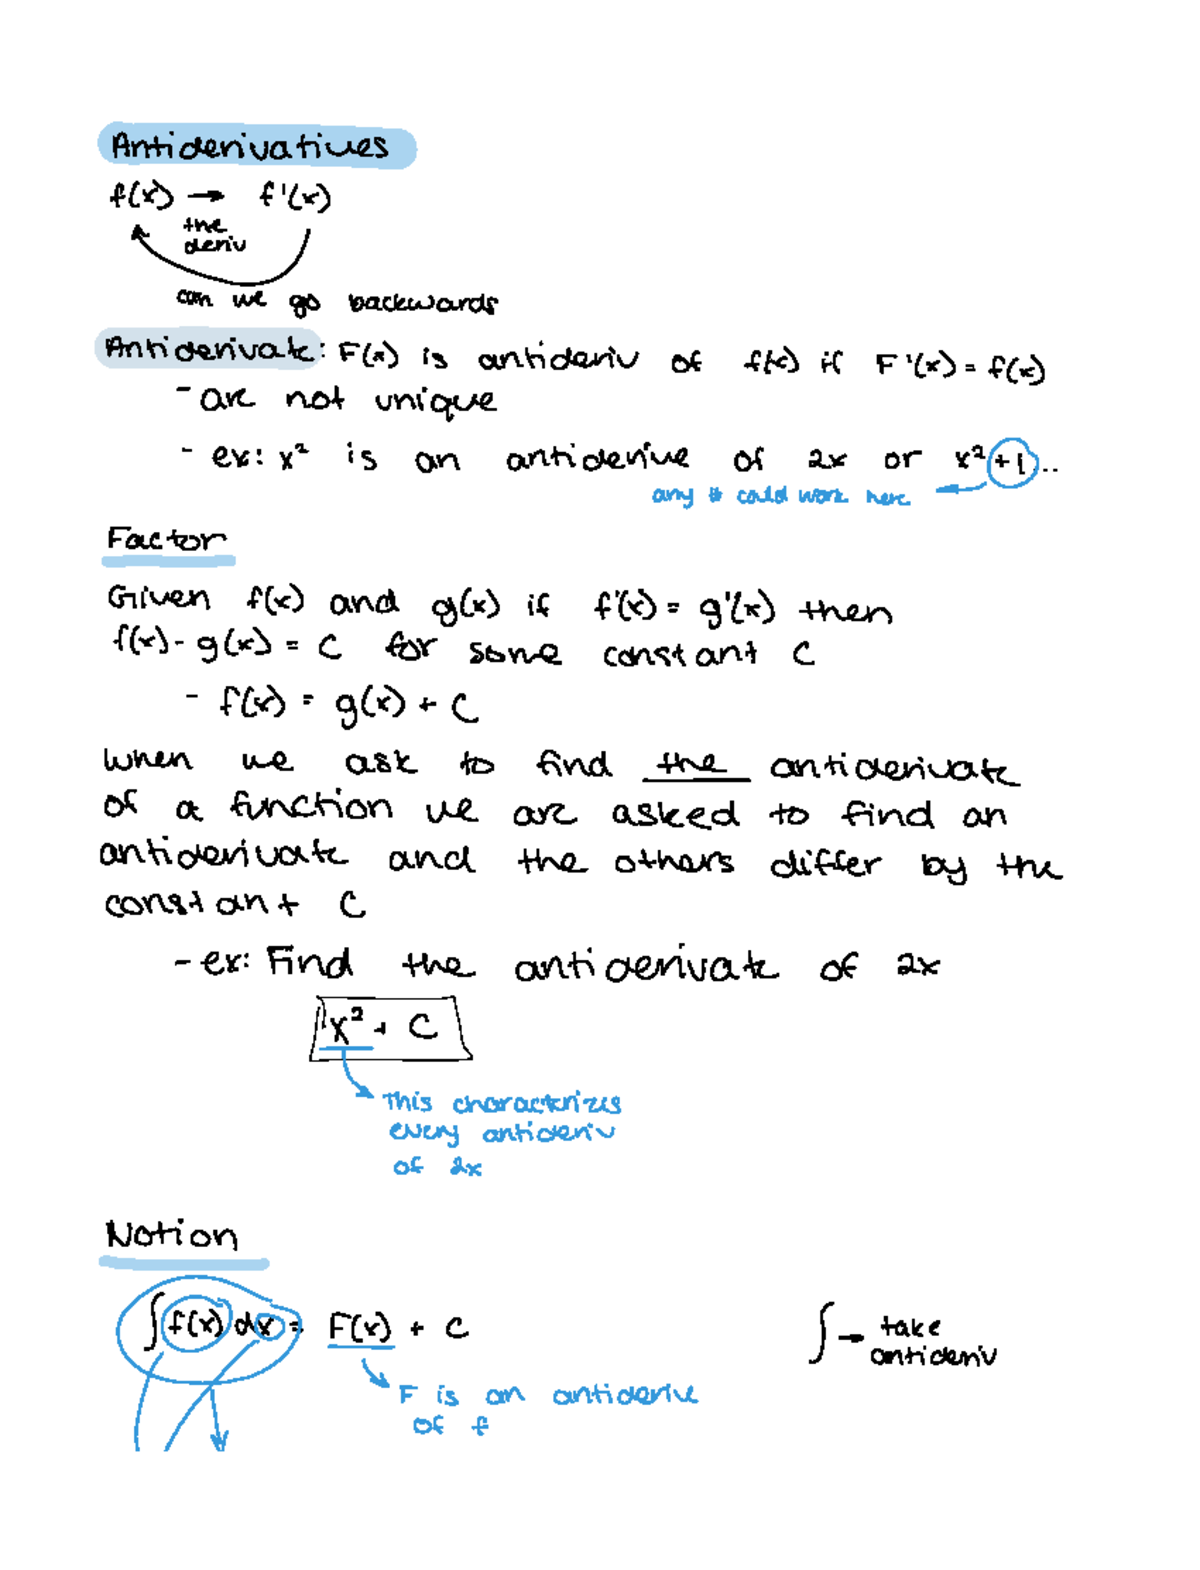 Antiderivatives
f(x) → f'(x)
the
deriv
can we go backwards
Antiderivate: F(x) is antideriv of f(x) if F'(x) = f(x)
- are not unique
- ex: x² is an antiderive of 2x or x² + 1 ..
any # could work here
Factor
Given f(x) and g(x) if f'(x) = g'(x) then
f(x) - g(x) = C for some constant C
- f(x) = g(x) + C
When we ask to find the antiderivate
of a function we are asked to find an
antiderivate and the others differ by the
constant C
- ex: Find the antiderivate of 2x
x² + C
This characterizes
every antideriv
of 2x
Notion
∫ f(x) dx = F(x) + C
∫ → take
antideriv
F is an antiderive
of f